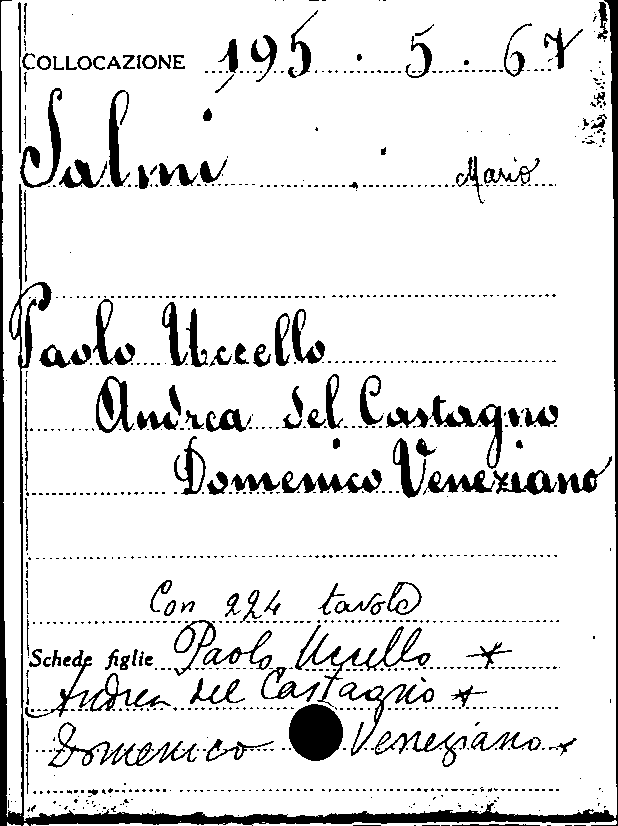 COLLOCAZIONE 195 . 5 . 67
Salmi Mario
Paolo Uccello
Andrea del Castagno
Domenico Veneziano
Con 224 tavole
Schede figlie Paolo Uccello *
Andrea del Castagno *
Domenico Veneziano *